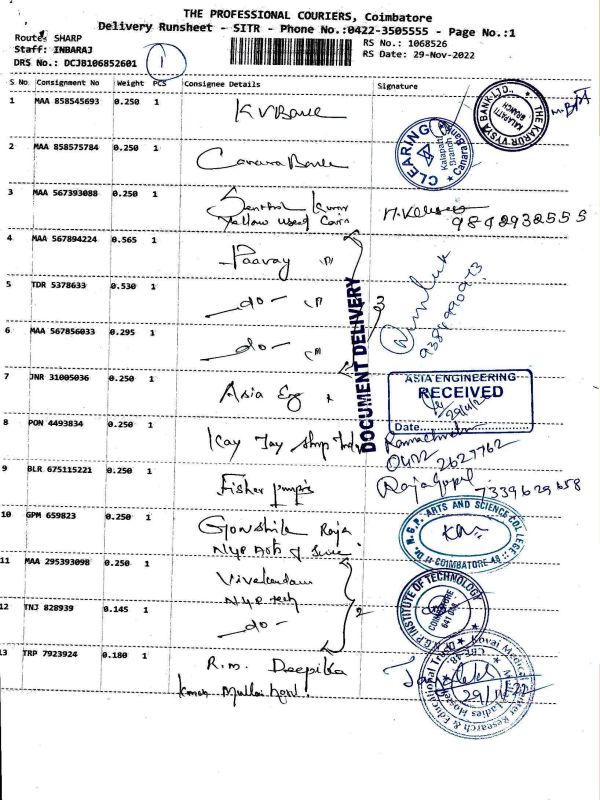 THE PROFESSIONAL COURIERS, Coimbatore
Delivery Runsheet - SITR - Phone No.:0422-3505555 - Page No.:1
Route: SHARP
RS No.: 1068526
Staff: INBARAJ
RS Date: 29-Nov-2022
DRS No.: DCJB106852601
1
S No. Consignment No Weight PCS Consignee Details Signature
1 MAA 858545693 0.250 1 KVBank
THE KARUR VYSYA BANK LTD., KALAPATTI BRANCH
2 MAA 858575784 0.250 1 Canara Bank
CLEARING Canara Bank Kalapatti Branch
3 MAA 567393088 0.250 1 Senthil Kumar
Yellow used Cars
9842932555
4 MAA 567894224 0.565 1 Paavay
5 TDR 5378633 0.530 1 -do-
6 MAA 567856033 0.295 1 -do-
3
DOCUMENT DELIVERY
7 JNR 31005036 0.250 1 Asia Eng
ASIA ENGINEERING
RECEIVED
Date
8 PON 4493834 0.250 1 Kay Jay Shrp Ind
0422 2627762
9 BLR 675115221 0.250 1 Fisher pumps
Rajagopal 7339629658
10 GPM 659823 0.250 1 Gowshik Raja
Dr. N.G.P. ARTS AND SCIENCE COLLEGE COIMBATORE-48
11 MAA 295393098 0.250 1 Vivekandam
NGP tech
Dr. N.G.P. INSTITUTE OF TECHNOLOGY COIMBATORE 641 048
12 TNJ 828939 0.145 1 -do-
2
13 TRP 7923924 0.180 1 R.M. Deepika
Mullai host.
29/11/22
Kovai Medical Center Research & Educational Trust Ladies Hostel CBE-48